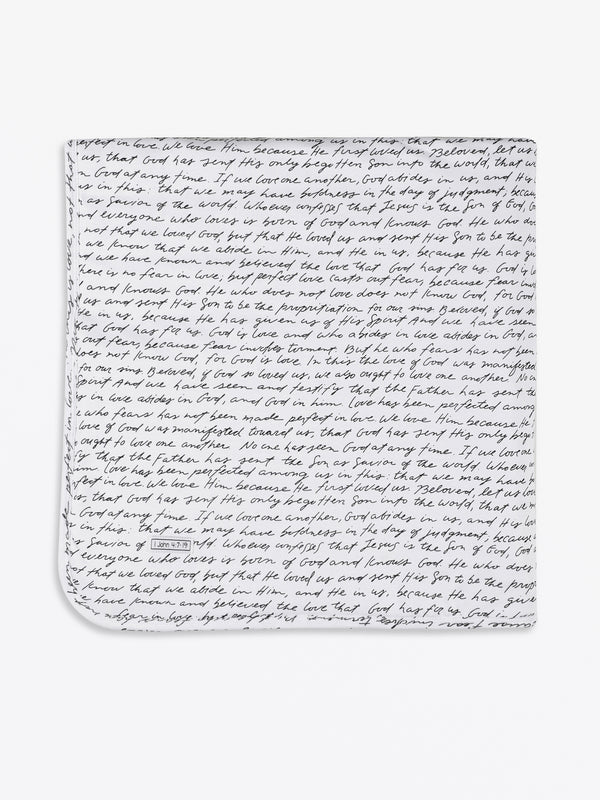 erfect in love We love Him because He first loved us. Beloved, let
us, that God has sent His only begotten Son into the world, that we
n God at any time. If we love one another, God abides in us, and His
us in this: that we may have boldness in the day of judgment; becau
n as Savior of the world. Whoever confesses that Jesus is the Son of God, G
nd everyone who loves is born of God and knows God. He who do
not that we loved God, but that He loved us and sent His Son to be the pr
we know that we abide in Him, and He in us, because He has gi
d we have known and believed the love that God has for us. God is lo
here is no fear in love; but perfect love casts out fear, because fear invo
and knows God. He who does not love does not know God, for God
us and sent His Son to be the propitiation for our sins Beloved, if God so
He in us, because He has given us of His Spirit And we have seen
that God has for us. God is love and who abides in love abides in God, a
out fear, because fear involves torment. But he who fears has not been
does not know God, for God is love. In this the love of God was manifested
for our sins Beloved, if God so loved us, we also ought to love one another. No o
Spirit And we have seen and testify that the Father has sent th
s in love abides in God, and God in him love has been perfected among
e who fears has not been made perfect in love We love Him because He
love of God was manifested toward us, that God has sent His only bego
ought to love one another No one has seen God at any time. If we love one
fy that the Father has sent the Son as Savior of the world Whoever
him love has been perfected among us in this: that we may have
fect in love We love Him because He first loved us. Beloved, let us lov
us, that God has sent His only begotten Son into the world, that w
God at any time. If we love one another, God abides in us, and His lo
s in this: that we may have boldness in the day of judgment, because
s Savior of 1 John 4:7-19 rld. Whoever confesses that Jesus is the Son of God, God
d everyone who loves is born of God and knows God. He who does
ot that we loved God but that He loved us and sent His Son to be the prop
we know that we abide in Him, and He in us, because He has give
have known and believed the love that God has for us God is